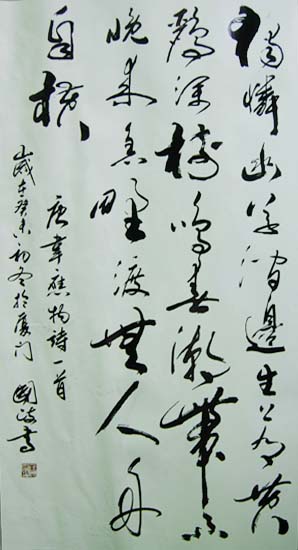 獨憐幽草澗邊生上有黃
鸝深樹鳴春潮帶雨
晚來急野渡無人舟
自橫
唐韋應物詩一首
歲在癸未初冬於廈門 國 書